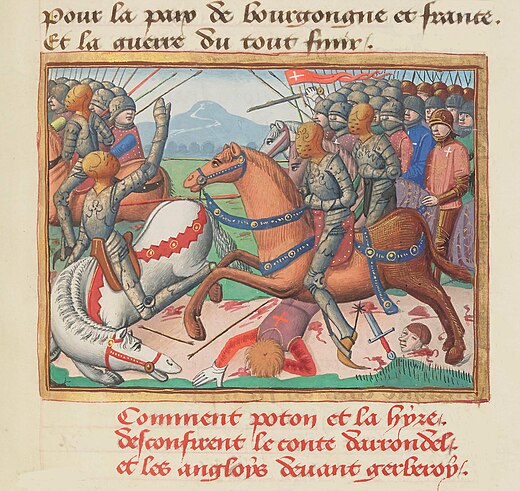 Pour la paix de bourgongne et france.
Et la guerre du tout finir.
Comment poton et la hyre.
desconfirent le conte darrondel
et les angloys devant gerberoy.